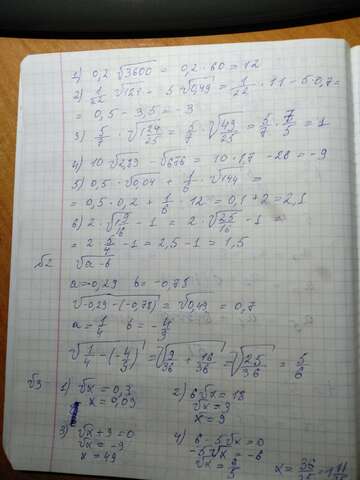 1) 0,2 √3600 = 0,2 · 60 = 12
2) 1/22 √121 - 5 √0,49 = 1/22 · 11 - 5·0,7 =
= 0,5 - 3,5 = -3
3) 5/7 · √1 24/25 = 5/7 · √49/25 = 5/7 · 7/5 = 1
4) 10 √2,89 - √676 = 10·1,7 - 26 = -9
5) 0,5 · √0,04 + 1/6 · √144 =
= 0,5 · 0,2 + 1/6 · 12 = 0,1 + 2 = 2,1
6) 2 · √1 9/16 - 1 = 2 · √25/16 - 1 =
= 2 · 5/4 - 1 = 2,5 - 1 = 1,5
√a-b
a = -0,29 b = -0,78
√-0,29 - (-0,78) = √0,49 = 0,7
a = 1/4 b = -4/9
√1/4 - (-4/9) = √9/36 + 16/36 = √25/36 = 5/6
1) √x = 0,3
x = 0,09
2) 6√x = 18
√x = 3
x = 9
3) √x + 9 = 0
√x = -9
x = 49
4) 6 - 5√x = 0
-5√x = -6
√x = 6/5
x = 36/25 = 1 11/25